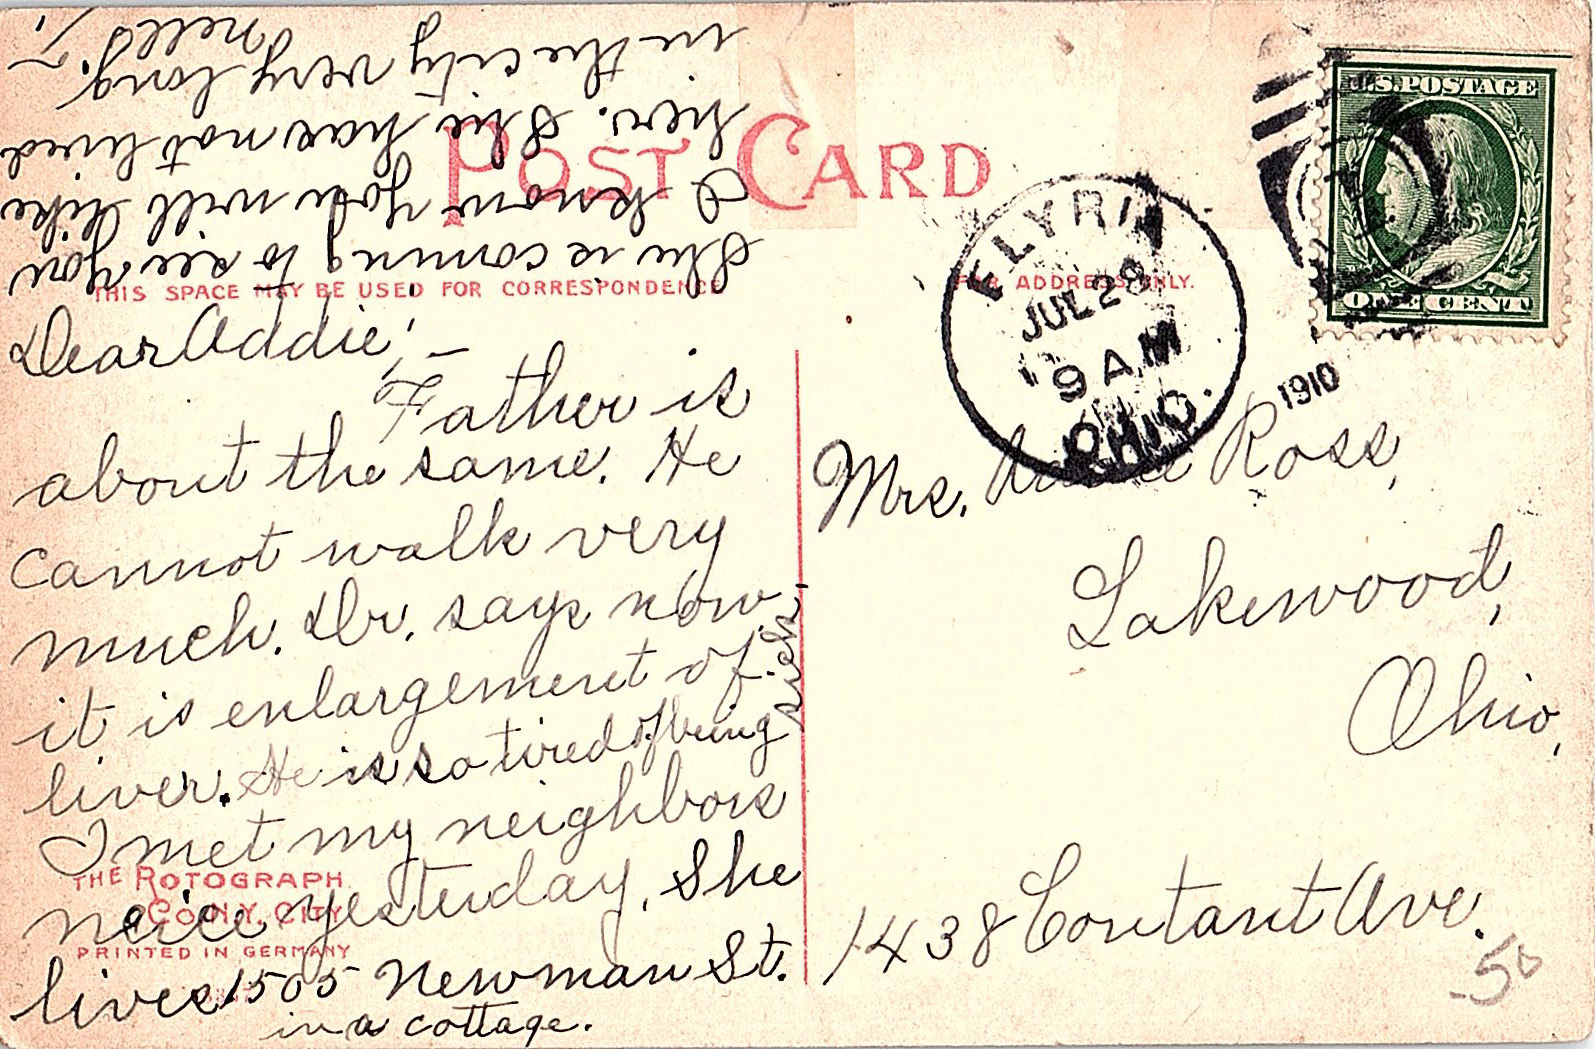 POST CARD
THIS SPACE MAY BE USED FOR CORRESPONDENCE
FOR ADDRESS ONLY.
U.S.POSTAGE
ONE CENT
ELYRIA
JUL 28
9 AM
OHIO.
1910
Dear Addie,—
Father is
about the same. He
cannot walk very
much. Dr. says now
it is enlargement of
liver. He is so tired of being
sick.
I met my neighbors
neice yesterday. She
lives 1505 Newman St.
in a cottage.
She is coming to see you
I know you will like
her. She has not lived
in the city very long.—
Nell
THE ROTOGRAPH
CO. N.Y. CITY
PRINTED IN GERMANY
Mrs. Ross,
Lakewood,
Ohio,
1438 Coutant Ave.
50